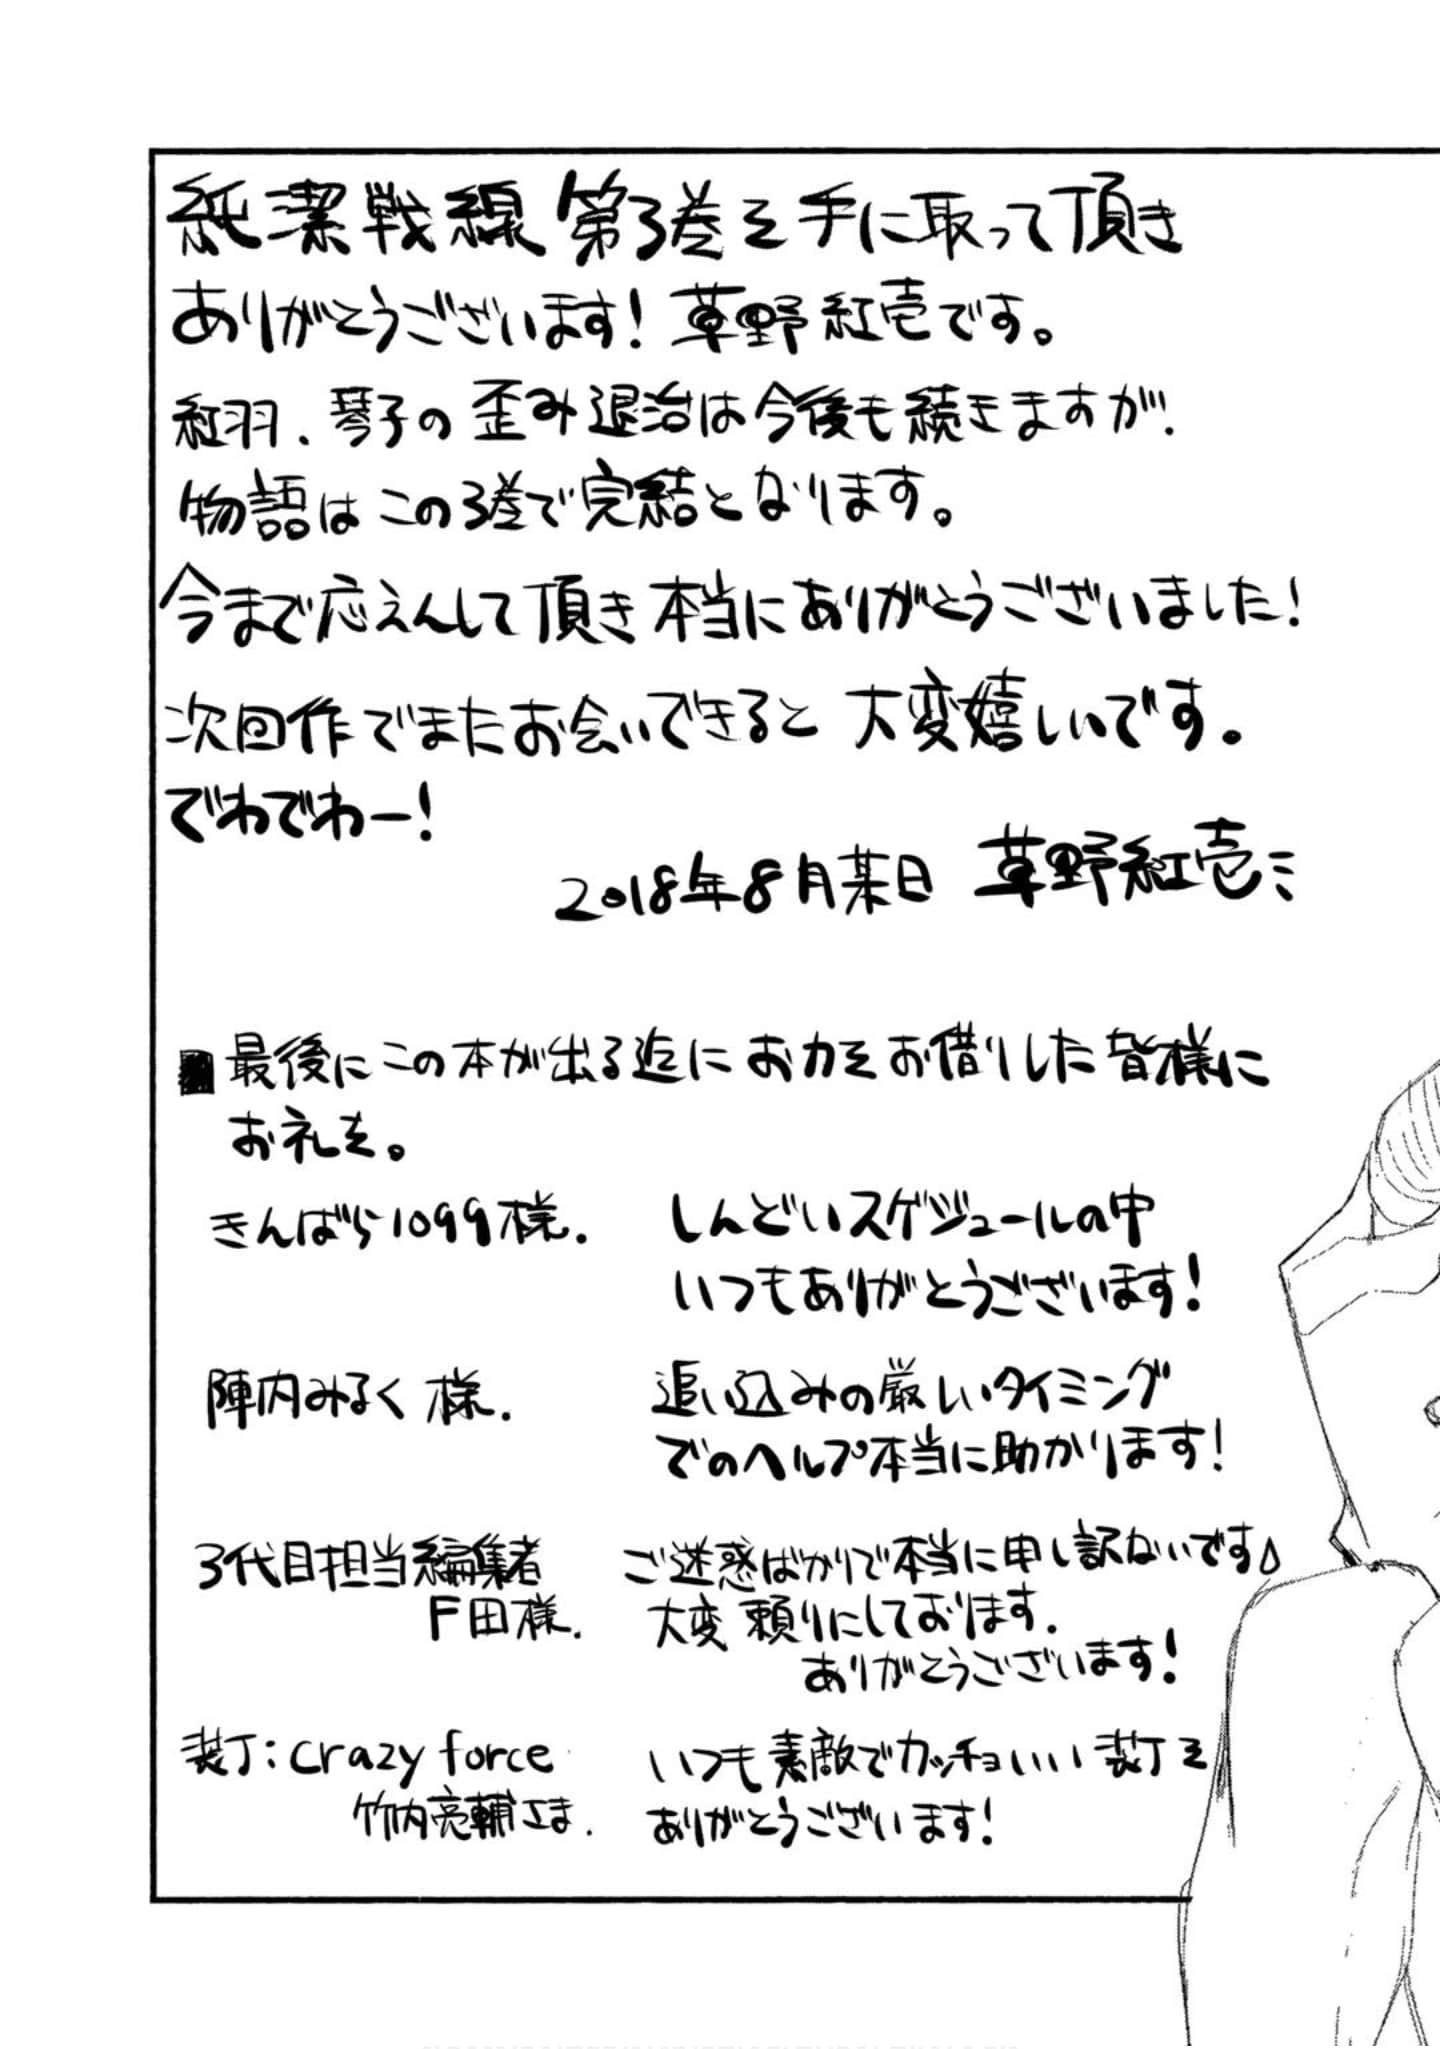 純潔戦線 第3巻を手に取って頂き
ありがとうございます！草野紅壱です。
紅羽、琴子の歪み退治は今後も続きますが、
物語はこの3巻で完結となります。
今まで応えんして頂き本当にありがとうございました！
次回作でまたお会いできると大変嬉しいです。
でわでわー！
2018年8月某日 草野紅壱
■最後にこの本が出る迄にお力をお借りした皆様に
お礼を。
きんばら1099様.
しんどいスケジュールの中
いつもありがとうございます！
陣内みるく様.
追い込みの厳しいタイミング
でのヘルプ本当に助かります！
3代目担当編集者
F田様.
ご迷惑ばかりで本当に申し訳ないです
大変頼りにしております.
ありがとうございます！
装丁：crazy force
竹内亮輔さま.
いつも素敵でカッチョいいい装丁を
ありがとうございます！